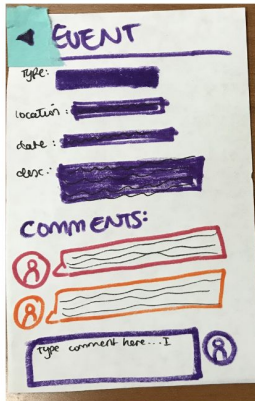 EVENT
Type:
location:
date:
desc.:
COMMENTS:
Type comment here...I